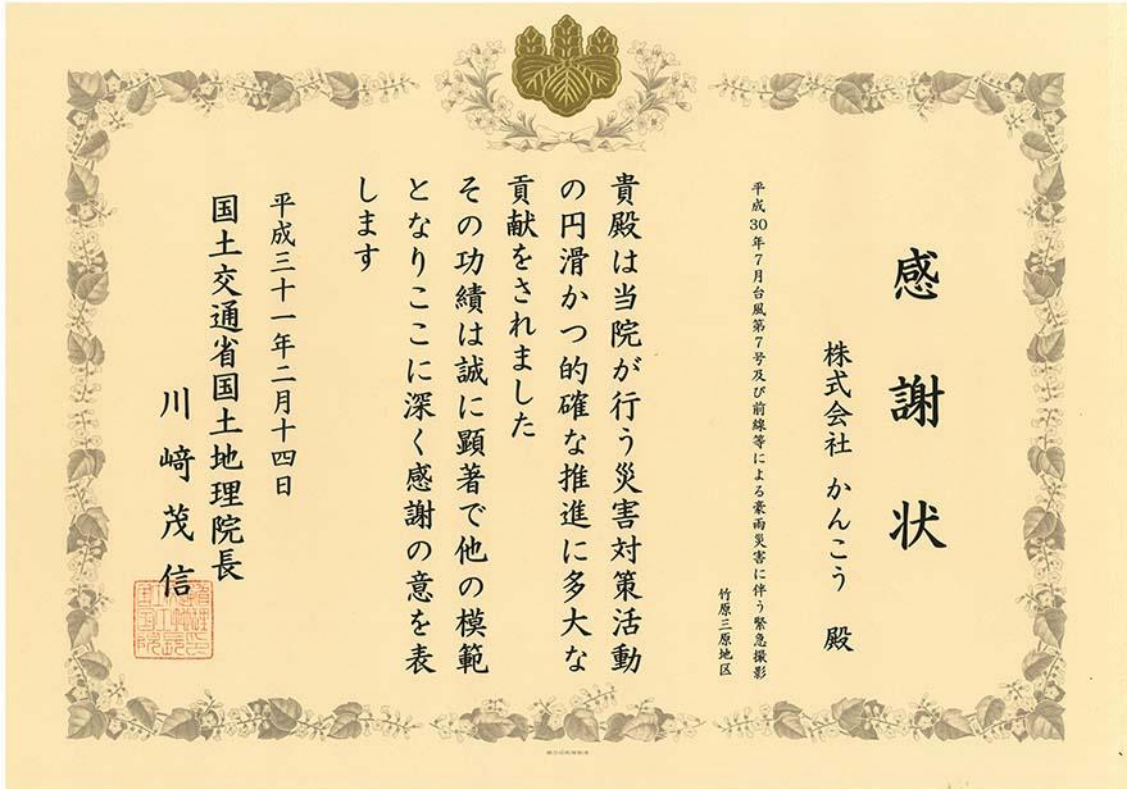 感謝状
株式会社 かんこう 殿
平成30年7月台風第7号及び前線等による豪雨災害に伴う緊急撮影
竹原三原地区
貴殿は当院が行う災害対策活動
の円滑かつ的確な推進に多大な
貢献をされました
その功績は誠に顕著で他の模範
となりここに深く感謝の意を表
します
平成三十一年二月十四日
国土交通省国土地理院長
川﨑茂信